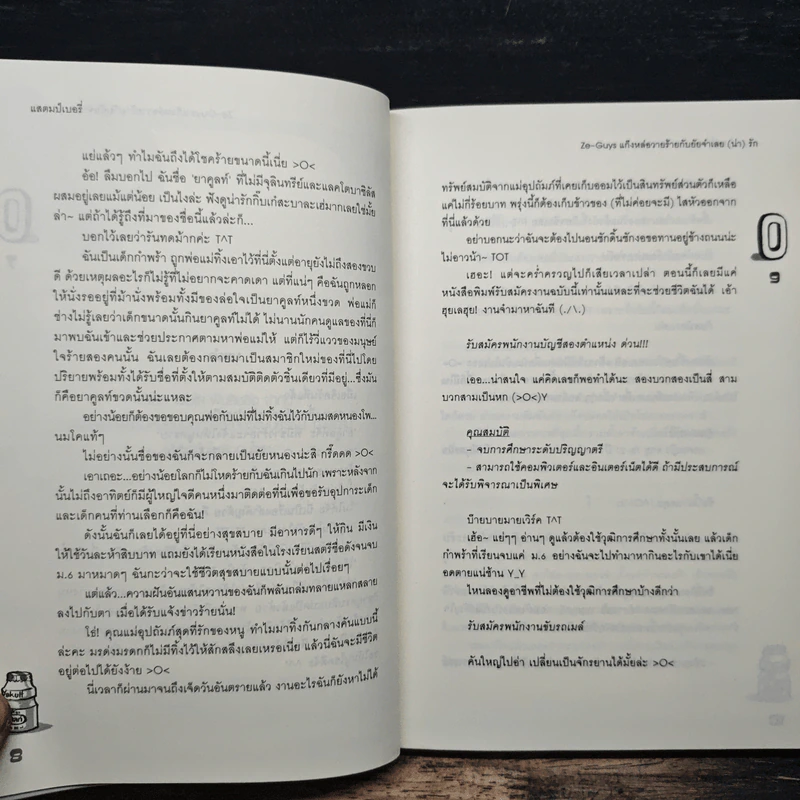 แสตมป์เบอรี่
แย่แล้วๆ ทำไมฉันถึงได้โชคร้ายขนาดนี้เนี่ย >O<
อ้อ! ลืมบอกไป ฉันชื่อ 'ยาคูลท์' ที่ไม่มีจุลินทรีย์และแลคโตบาซิลัส
ผสมอยู่เลยแม้แต่น้อย เป็นไงล่ะ ฟังดูน่ารักกิ๊บเก๋สะบาละเฮ่มากเลยใช่มั้ย
ล่า~ แต่ถ้าได้รู้ถึงที่มาของชื่อนี้แล้วล่ะก็...
บอกไว้เลยว่ารันทดม้ากค่ะ T^T
ฉันเป็นเด็กกำพร้า ถูกพ่อแม่ทิ้งเอาไว้ที่นี่ตั้งแต่อายุยังไม่ถึงสองขวบ
ดี ด้วยเหตุผลอะไรก็ไม่รู้ที่ไม่อยากจะคาดเดา แต่ที่แน่ๆ คือฉันถูกหลอก
ให้นั่งรออยู่ที่ม้านั่งพร้อมทั้งมีของล่อใจเป็นยาคูลท์หนึ่งขวด พ่อแม่ก็
ช่างไม่รู้เลยว่าเด็กขนาดนั้นกินยาคูลท์ไม่ได้ ไม่นานนักคนดูแลของที่นี่ก็
มาพบฉันเข้าและช่วยประกาศตามหาพ่อแม่ให้ แต่ก็ไร้วี่แววของมนุษย์
ใจร้ายสองคนนั้น ฉันเลยต้องกลายมาเป็นสมาชิกใหม่ของที่นี่ไปโดย
ปริยายพร้อมทั้งได้รับชื่อที่ตั้งให้ตามสมบัติติดตัวชิ้นเดียวที่มีอยู่...ซึ่งมัน
ก็คือยาคูลท์ขวดนั้นน่ะแหละ
อย่างน้อยก็ต้องขอขอบคุณพ่อกับแม่ที่ไม่ทิ้งฉันไว้กับนมสดหนองโพ...
นมโคแท้ๆ
ไม่อย่างนั้นชื่อของฉันก็จะกลายเป็นยัยหนองน่ะสิ กรี๊ดดด >O<
เอาเถอะ...อย่างน้อยโลกก็ไม่โหดร้ายกับฉันเกินไปนัก เพราะหลังจาก
นั้นไม่ถึงอาทิตย์ก็มีผู้ใหญ่ใจดีคนหนึ่งมาติดต่อที่นี่เพื่อขอรับอุปการะเด็ก
และเด็กคนที่ท่านเลือกก็คือฉัน!
ดังนั้นฉันก็เลยได้อยู่ที่นี่อย่างสุขสบาย มีอาหารดีๆ ให้กิน มีเงิน
ให้ใช้วันละห้าสิบบาท แถมยังได้เรียนหนังสือในโรงเรียนสตรีชื่อดังจนจบ
ม.6 มาหมาดๆ ฉันกะว่าจะใช้ชีวิตสุขสบายแบบนั้นต่อไปเรื่อยๆ
แต่แล้ว...ความฝันอันแสนหวานของฉันก็พลันถล่มทลายแหลกสลาย
ลงไปกับตา เมื่อได้รับแจ้งข่าวร้ายนั่น!
โฮ่! คุณแม่อุปถัมภ์สุดที่รักของหนู ทำไมมาทิ้งกันกลางคันแบบนี้
ล่ะคะ มรดงมรดกก็ไม่มีทิ้งไว้ให้สักสลึงเลยเหรอเนี่ย แล้วนี่ฉันจะมีชีวิต
อยู่ต่อไปได้ยังง้าย >O<
นี่เวลาก็ผ่านมาจนถึงเจ็ดวันอันตรายแล้ว งานอะไรฉันก็ยังหาไม่ได้
8
Ze-Guys แก๊งหล่อวายร้ายกับยัยจำเลย (น่า) รัก
ทรัพย์สมบัติจากแม่อุปถัมภ์ที่เคยเก็บออมไว้เป็นสินทรัพย์ส่วนตัวก็เหลือ
แค่ไม่กี่ร้อยบาท พรุ่งนี้ก็ต้องเก็บข้าวของ (ที่ไม่ค่อยจะมี) ไสหัวออกจาก
ที่นี่แล้วด้วย
อย่าบอกนะว่าฉันจะต้องไปนอนชักดิ้นชักงอขอทานอยู่ข้างถนนน่ะ
ไม่อาวน้า~ TOT
เฮอะ! แต่จะคร่ำครวญไปก็เสียเวลาเปล่า ตอนนี้ก็เลยมีแค่
หนังสือพิมพ์รับสมัครงานฉบับนี้เท่านั้นแหละที่จะช่วยชีวิตฉันได้ เอ้า
ฮุยเลฮุย! งานจ๋ามาหาฉันที (./\.)
รับสมัครพนักงานบัญชีสองตำแหน่ง ด่วน!!!
เออ...น่าสนใจ แค่คิดเลขก็พอทำได้นะ สองบวกสองเป็นสี่ สาม
บวกสามเป็นหก (>O<)Y
คุณสมบัติ
- จบการศึกษาระดับปริญญาตรี
- สามารถใช้คอมพิวเตอร์และอินเตอร์เน็ตได้ดี ถ้ามีประสบการณ์
จะได้รับพิจารณาเป็นพิเศษ
บ๊ายบายมายเวิร์ค T^T
เฮ้อ~ แย่ๆๆ อ่านๆ ดูแล้วต้องใช้วุฒิการศึกษาทั้งนั้นเลย แล้วเด็ก
กำพร้าที่เรียนจบแค่ ม.6 อย่างฉันจะไปทำมาหากินอะไรกับเขาได้เนี่ย
อดตายแน่ช้าน Y_Y
ไหนลองดูอาชีพที่ไม่ต้องใช้วุฒิการศึกษาบ้างดีกว่า
รับสมัครพนักงานขับรถเมล์
คันใหญ่ไปอ่า เปลี่ยนเป็นจักรยานได้มั้ยล่ะ >O<
9